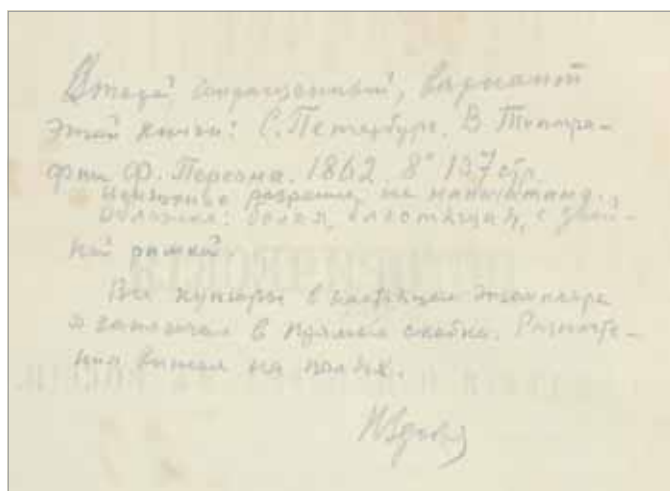 Второй, сокращенный, вариант
этой книги: С. Петербург. В Типогра-
фии Ф. Персона. 1862. 8° 137 стр.
разрешение не напечатано.
Обложка: белая, блестящая, с двой-
ной рамкой.
Все купюры в настоящем экземпляре
я заключил в прямые скобки. Разночте-
ния вынес на полях.